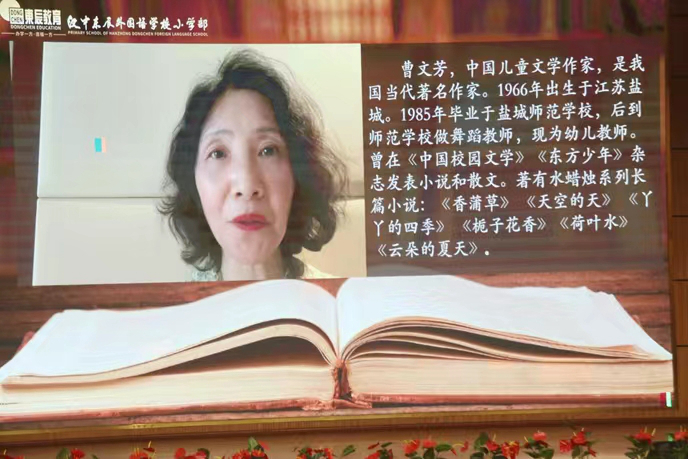 DONG CHEN
東辰教育
DONGCHEN EDUCATION
汉中东辰外国语学校小学部
PRIMARY SCHOOL OF HANZHONG DONGCHEN FOREIGN LANGUAGE SCHOOL
曹文芳，中国儿童文学作家，是我
国当代著名作家。1966年出生于江苏盐
城。1985年毕业于盐城师范学校，后到
师范学校做舞蹈教师，现为幼儿教师。
曾在《中国校园文学》《东方少年》杂
志发表小说和散文。著有水蜡烛系列长
篇小说：《香蒲草》《天空的天》《丫
丫的四季》《栀子花香》《荷叶水》
《云朵的夏天》。